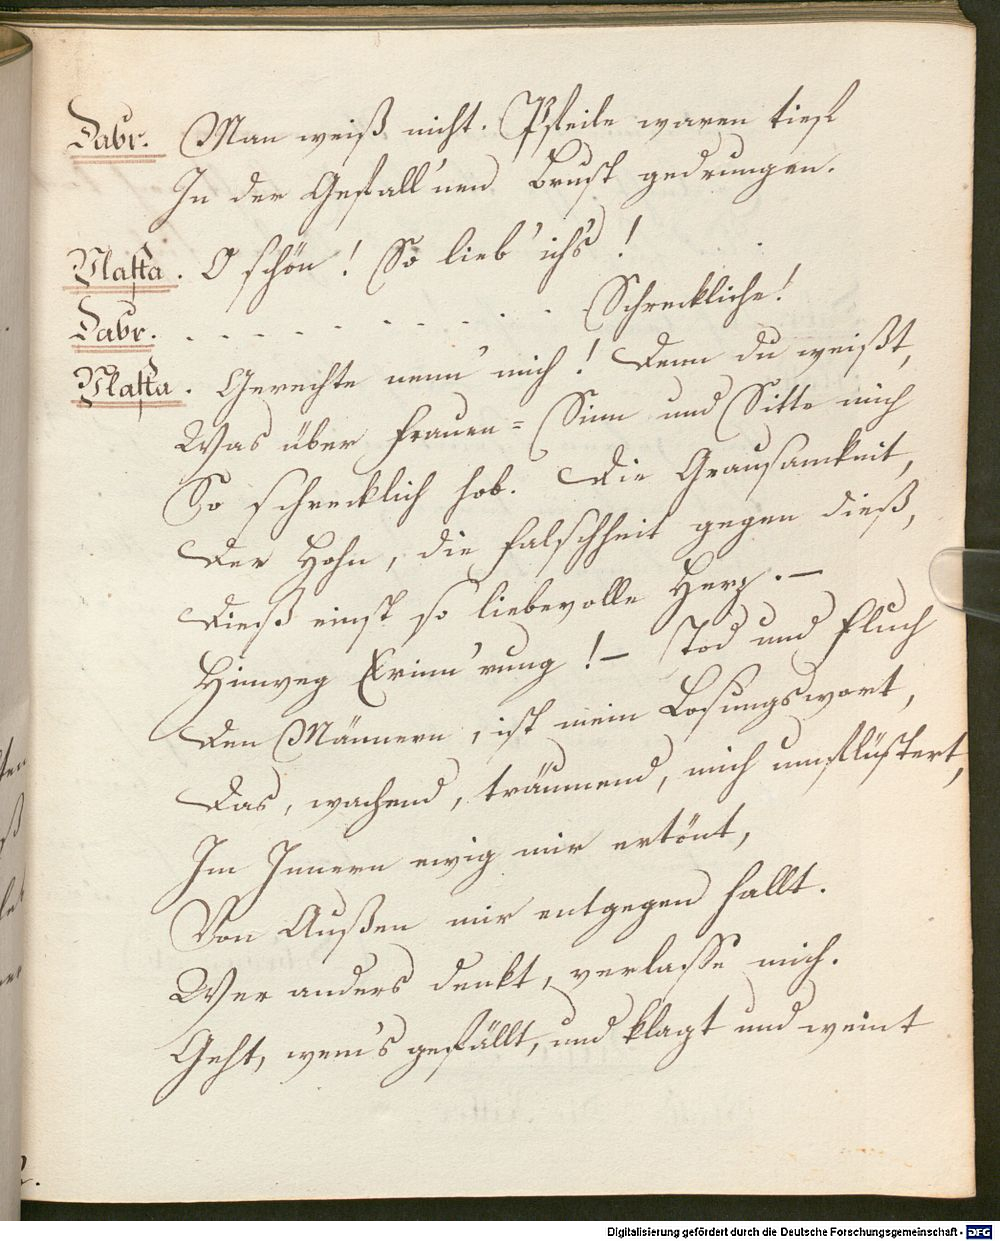 Dabr. Man weiß nicht. Pfeile waren tief
In der Gefall'nen Brust gedrungen.
Vlasta. O schön! So lieb' ichs!
Dabr. . . . . . . . . . . . . Schreckliche!
Vlasta. Gerechte nenn' mich! Denn du weißt,
Was über Frauen=Sinn und Sitte mich
So schrecklich hob. Die Grausamkeit,
Der Hohn, die Falschheit gegen dieß,
Dieß einst so liebevolle Herz. —
Hinweg Erinn'rung! — Tod und Fluch
Den Männern, ist mein Losungswort,
Das, wachend, träumend, mich umflüstert,
Im Innern ewig mir ertönt,
Von Außen mir entgegen hallt.
Wer anders denkt, verlasse mich.
Geht, wem's gefällt, und klagt und weint
Digitalisierung gefördert durch die Deutsche Forschungsgemeinschaft - DFG